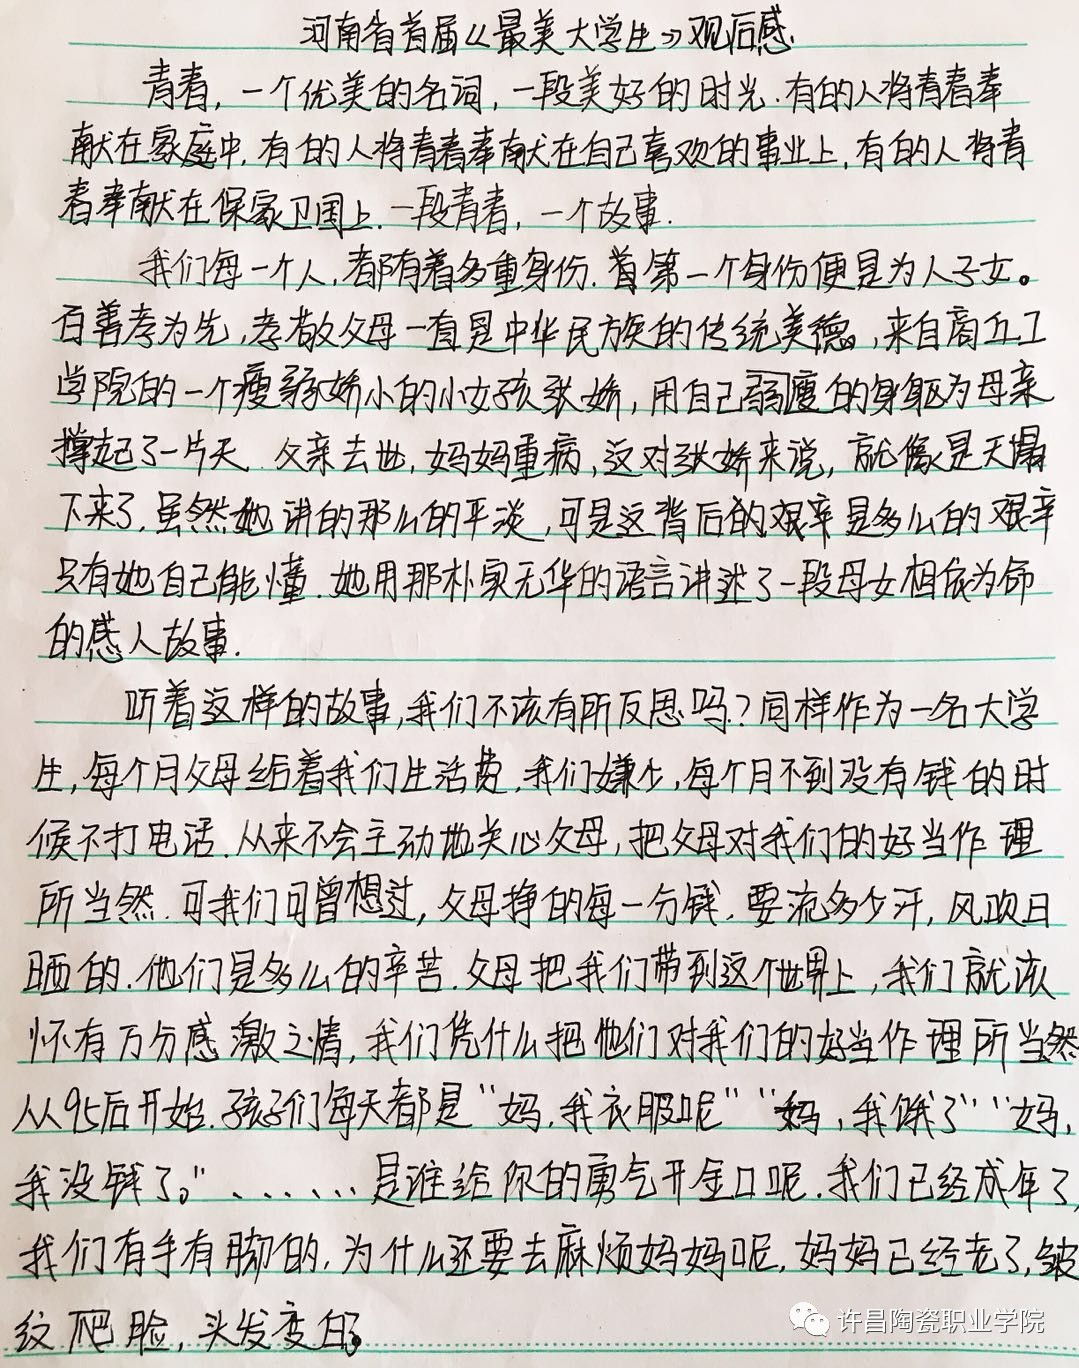 河南省首届《最美大学生》观后感.
青春，一个优美的名词，一段美好的时光.有的人将青春奉
献在家庭中.有的人将青春奉献在自己喜欢的事业上,有的人将青
春奉献在保家卫国上.一段青春，一个故事.
我们每一个人,都有着多重身份.第一个身份便是为人子女。
百善孝为先,孝敬父母一直是中华民族的传统美德。,来自商丘工
学院的一个瘦弱娇小的小女孩张娇，用自己弱瘦的身躯为母亲
撑起了一片天.父亲去世,妈妈重病,这对张娇来说，就像是天塌
下来了.虽然她讲的那么的平淡,可是这背后的艰辛是多么的艰辛
只有她自己能懂.她用那朴实无华的语言讲述了一段母女相依为命
的感人故事.
听着这样的故事,我们不该有所反思吗?同样作为一名大学
生,每个月父母给着我们生活费.我们嫌少,每个月不到没有钱的时
候不打电话.从来不会主动地关心父母,把父母对我们的好当作理
所当然.可我们可曾想过,父母挣的每一分钱.要流多少汗,风吹日
晒的.他们是多么的辛苦.父母把我们带到这个世界上,我们就该
怀有万分感激之情,我们凭什么把他们对我们的好当作理所当然
从95后开始.孩子们每天都是"妈.我衣服呢""妈,我饿了""妈,
我没钱了。"、、、、、、是谁给你的勇气开金口呢.我们已经成年了,
我们有手有脚的,为什么还要去麻烦妈妈呢.妈妈已经老了,皱
纹爬脸,头发变白了。
许昌陶瓷职业学院